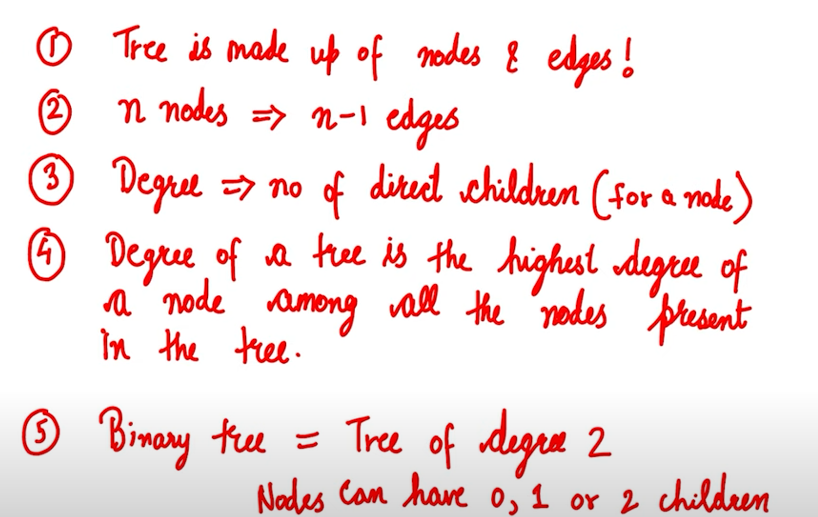 ① Tree is made up of nodes & edges!
② n nodes => n-1 edges
③ Degree => no of direct children (for a node)
④ Degree of a tree is the highest degree of
a node among all the nodes present
in the tree.
⑤ Binary tree = Tree of degree 2
Nodes can have 0, 1 or 2 children